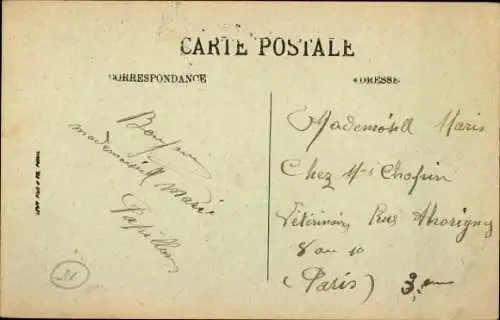 CARTE POSTALE
CORRESPONDANCE
ADRESSE
Bonjour
mademoisell Mari
Papillon
Mademoisell Maris
Chez Mr Chopin
Vétérinair Rue Thorigny
8 au 10
(Paris) 3.em
51